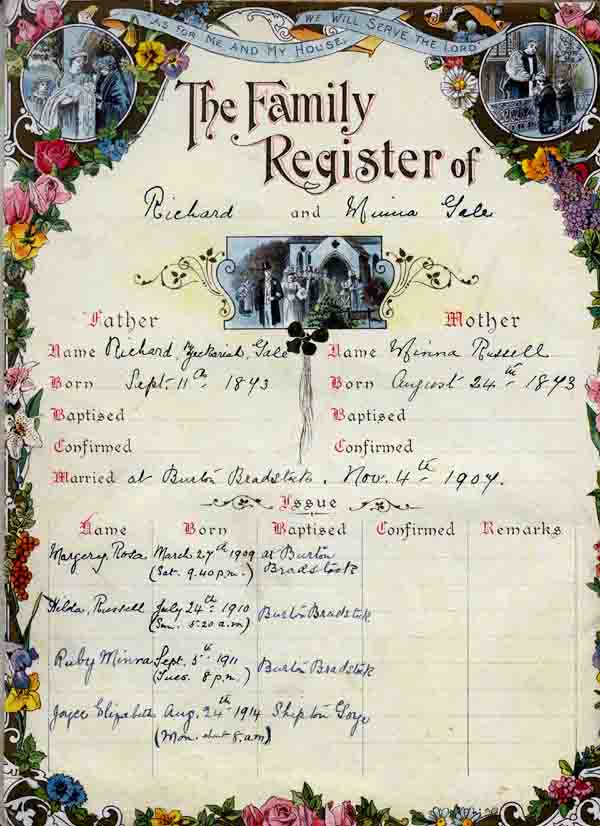 "As for Me and My House, We Will Serve the Lord."
The Family
Register of
Richard and Minna Gale
Father Mother
Name Richard, Zechariah, Gale Name Minna Russell
Born Sept. 11th 1873 Born August 24th 1873
Baptised Baptised
Confirmed Confirmed
Married at Burton Bradstock. Nov. 4th 1907.
Issue
Name Born Baptised Confirmed Remarks
Margery Rosa March 27th 1909 at Burton
(Sat. 9.40 p.m.) Bradstock
Hilda, Russell July 24th 1910 Burton Bradstock
(Sun. 5.20 a.m)
Ruby Minna Sept. 5th 1911 Burton Bradstock
(Tues. 8 p.m)
Joyce Elizabeth Aug. 24th 1914 Shipton Gorge
(Mon. about 8. am)